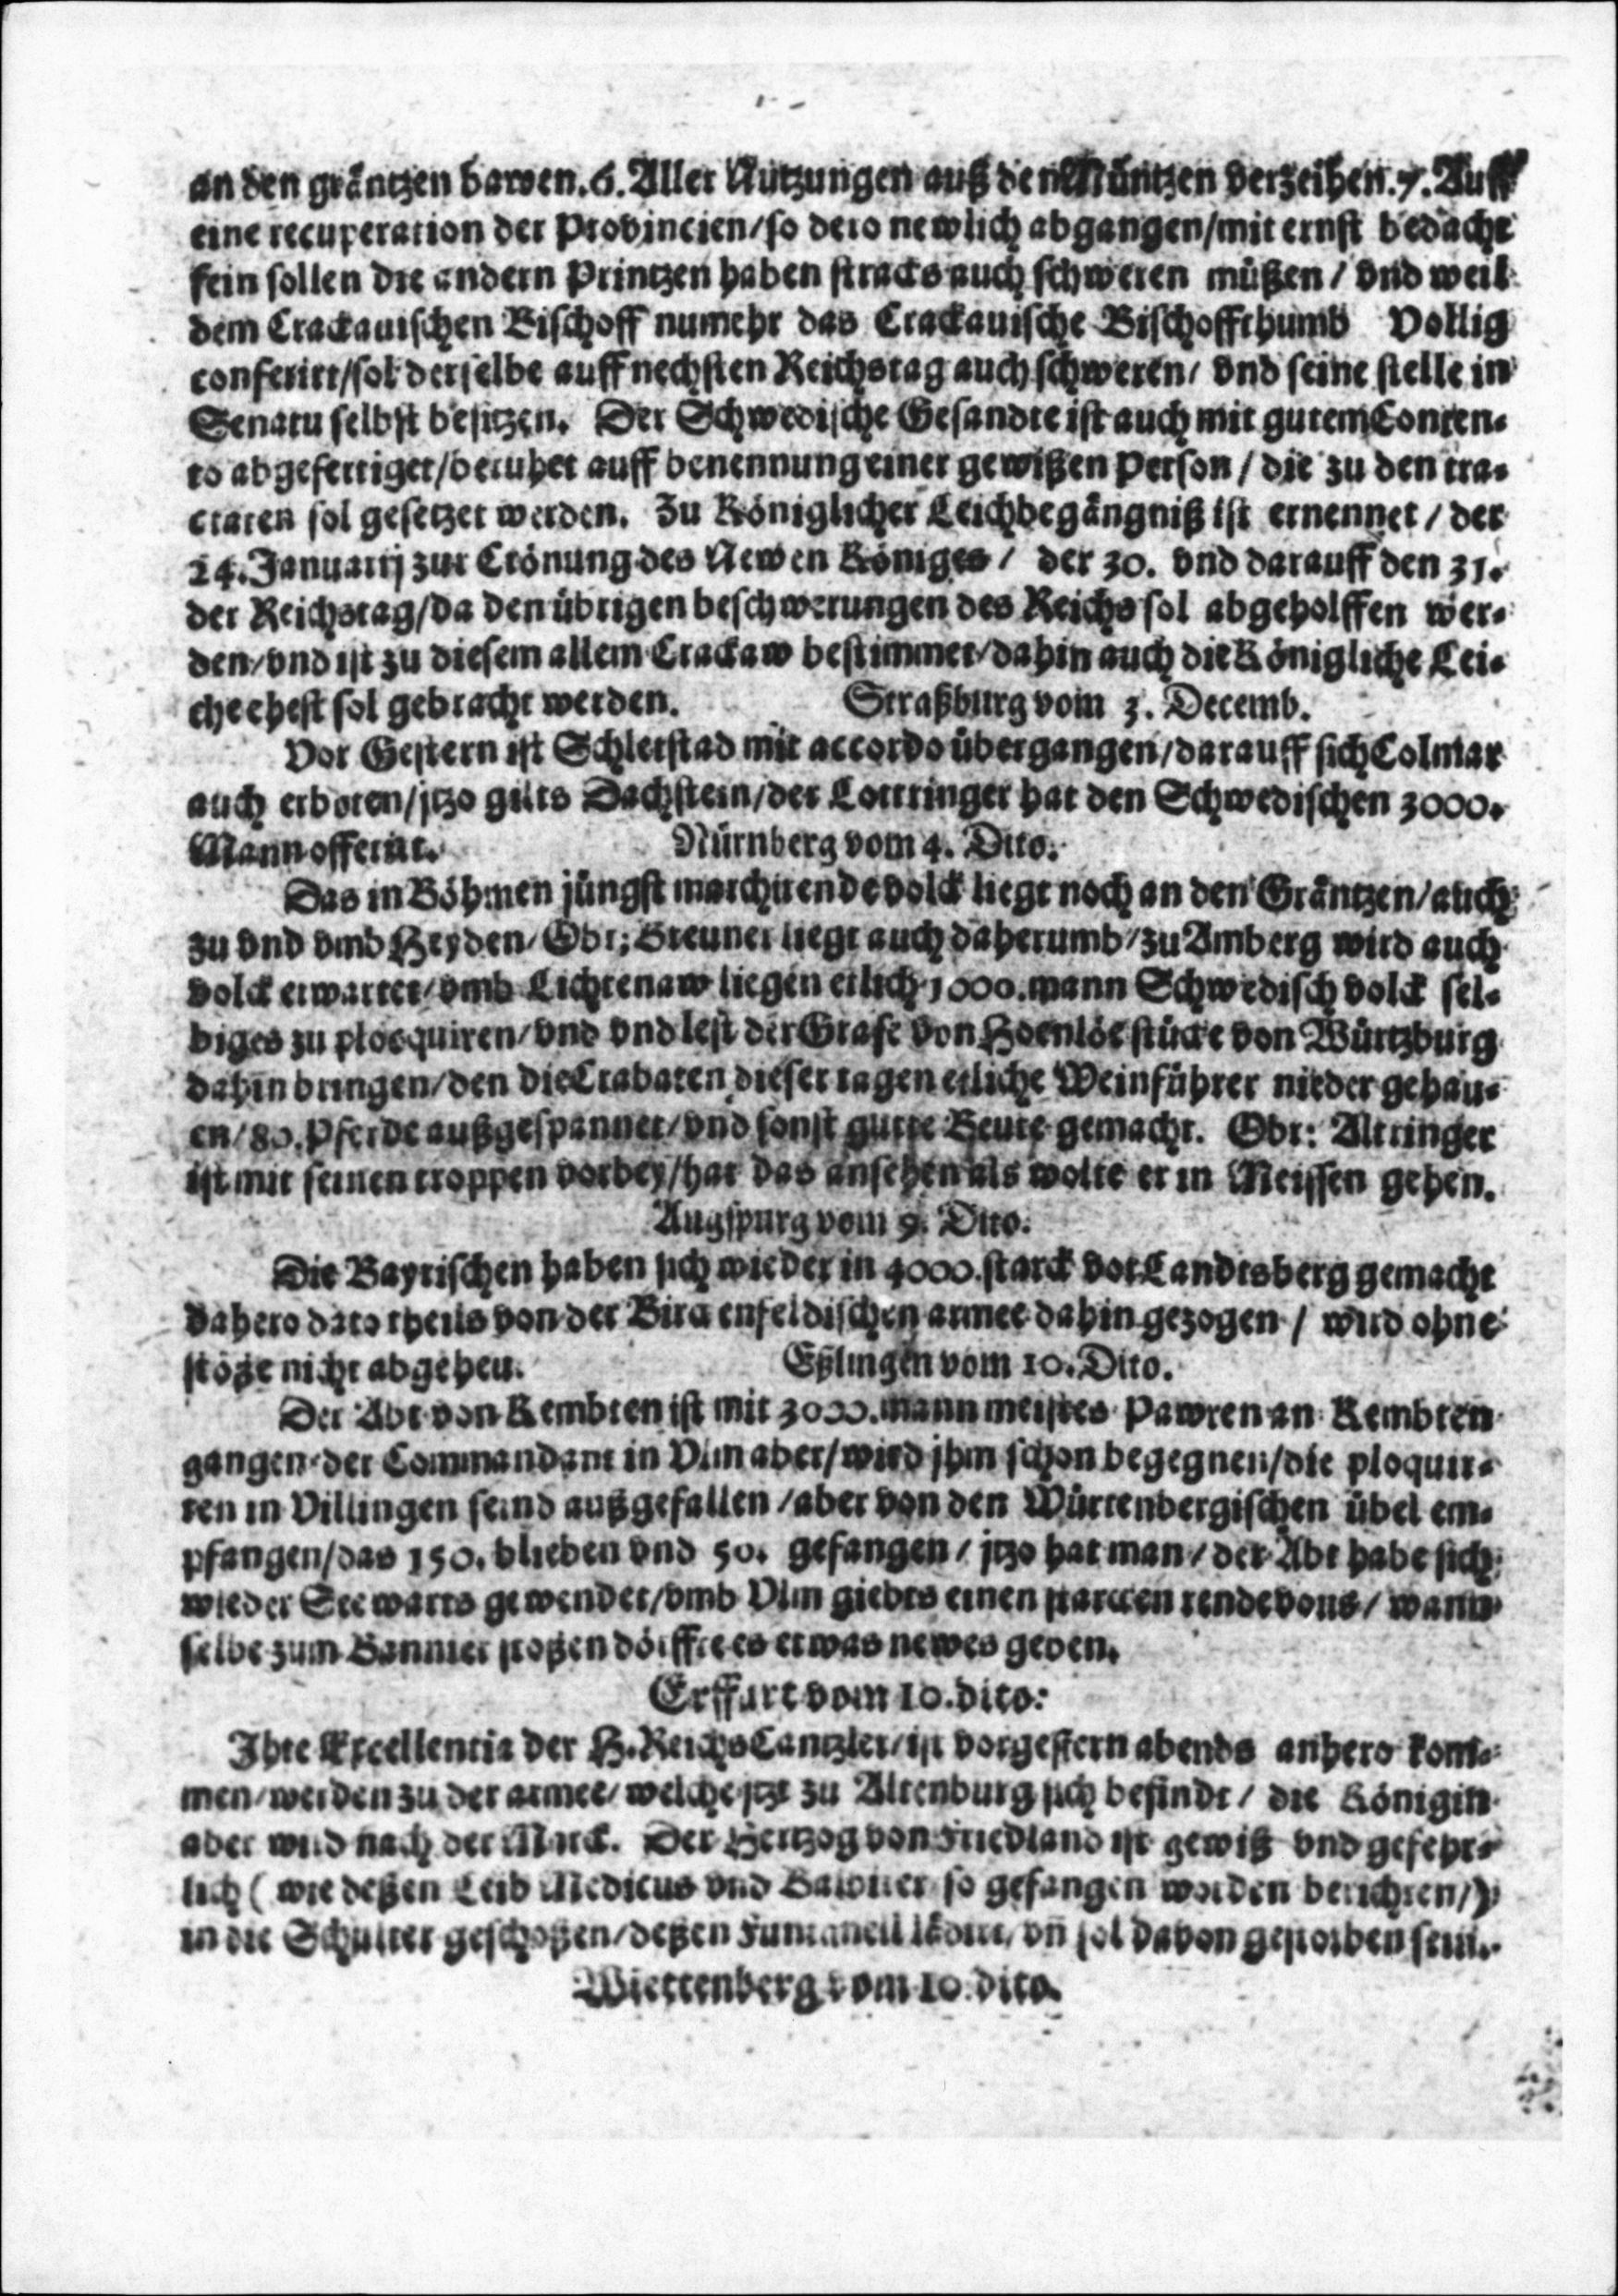 an den gräntzen bawen. 6. Aller Nutzungen auß den Müntzen verzeihen. 7. Auff
eine recuperation der Provincien/so dero newlich abgangen/mit ernst bedacht
sein sollen die andern Printzen haben stracks auch schweren müßen/ vnd weil
dem Crackauischen Bischoff numehr das Crackauische Bischoffthumb Vollig
conferirt/sol derselbe auff nechsten Reichstag auch schweren/ vnd seine stelle in
Senatu selbst besitzen. Der Schwedische Gesandte ist auch mit gutem Conten-
to abgefertiget/beruhet auff benennung einer gewißen Person/ die zu den tra-
ctaten sol gesetzet werden. Zu Königlicher Leichbegängniß ist ernennet/ der
24. Januarij zur Crönung des Newen Königes/ der 30. vnd darauff den 31.
der Reichstag/da den übrigen beschwerungen des Reichs sol abgeholffen wer-
den/vnd ist zu diesem allem Crackaw bestimmet/dahin auch die Königliche Lei-
che ehest sol gebracht werden. Straßburg vom 3. Decemb.
Vor Gestern ist Schletstad mit accordo übergangen/darauff sich Colmar
auch erboten/jtzo gilts Dachstein/der Lottringer hat den Schwedischen 3000.
Mann offerirt. Nürnberg vom 4. Dito.
Das in Böhmen jüngst marchirende volck liegt noch an den Gräntzen/auch
zu vnd vmb Heyden/Obr: Breuner liegt auch daherumb/zu Amberg wird auch
volck erwartet/vmb Lichtenaw liegen etlich 1000. mann Schwedisch volck sel-
biges zu plocquiren/vnd vnd lest der Grafe von Hoenlöe stücke von Würtzburg
dahin bringen/den die Crabaten dieser tagen etliche Weinführer nieder gehau-
en/80. Pferde außgespannet/vnd sonst gutte Beute gemacht. Obr: Altringer
ist mit seinen troppen vorbey/hat das ansehen als wolte er in Meissen gehen.
Augspurg vom 9. Dito.
Die Bayrischen haben sich wieder in 4000. starck vor Landtsberg gemacht
dahero dato theils von der Birckenfeldischen armee dahin gezogen/ wird ohne
stöße nicht abgehen. Eßlingen vom 10. Dito.
Der Abt von Kembten ist mit 3000. mann meistes Pawren an Kembten
gangen/der Commandant in Vlm aber/wird jhm schon begegnen/die ploquir-
ten in Villingen seind außgefallen/aber von den Würtenbergischen übel em-
pfangen/das 150. blieben vnd 50. gefangen/ jtzo hat man/ der Abt habe sich
wieder Seewarts gewendet/vmb Vlm giebts einen starcken rendevous/ wann
selbe zum Bannier stoßen dörffte es etwas newes geben.
Erffurt vom 10. dito:
Ihre Excellentia der H. ReichsCantzler/ist vorgestern abends anhero kom-
men/werden zu der armee/welche jtzt zu Altenburg sich befindt/ die Königin
aber wird nach der Marck. Der Hertzog von Friedland ist gewiß vnd gefehr-
lich (wie deßen Leib Medicus vnd so gefangen worden berichten/)
in die Schulter geschoßen/deßen vñ sol davon gestorben sein.
Wiettenberg vom 10. dito.